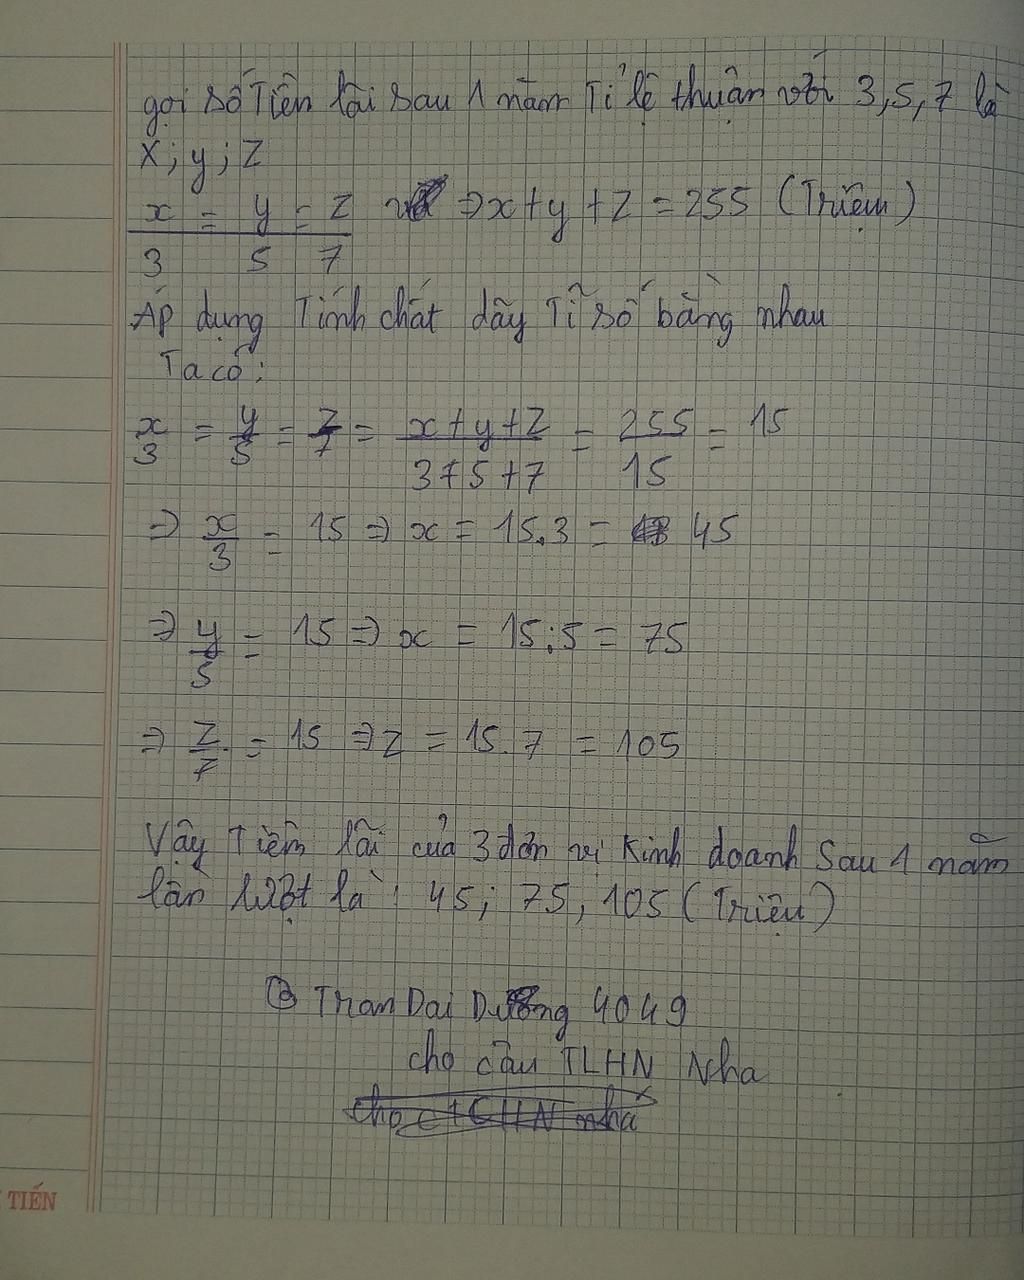 gọi số Tiền lãi sau 1 năm Tỉ lệ thuận với 3,5,7 là
X; y; Z
x/3 = y/5 = z/7 => x+y+Z = 255 (Triệu)
Áp dụng Tính chất dãy Tỉ số bằng nhau
Ta có:
x/3 = y/5 = z/7 = x+y+Z / 3+5+7 = 255/15 = 15
=> x/3 = 15 => x = 15.3 = 45
=> y/5 = 15 => x = 15:5 = 75
=> Z/7 = 15 => Z = 15.7 = 105
Vậy Tiền lãi của 3 đơn vị Kinh doanh Sau 1 năm
lần lượt là: 45; 75, 105 (Triệu)
Tran Dai Dương 4049
cho câu TLHN Nha
TIẾN